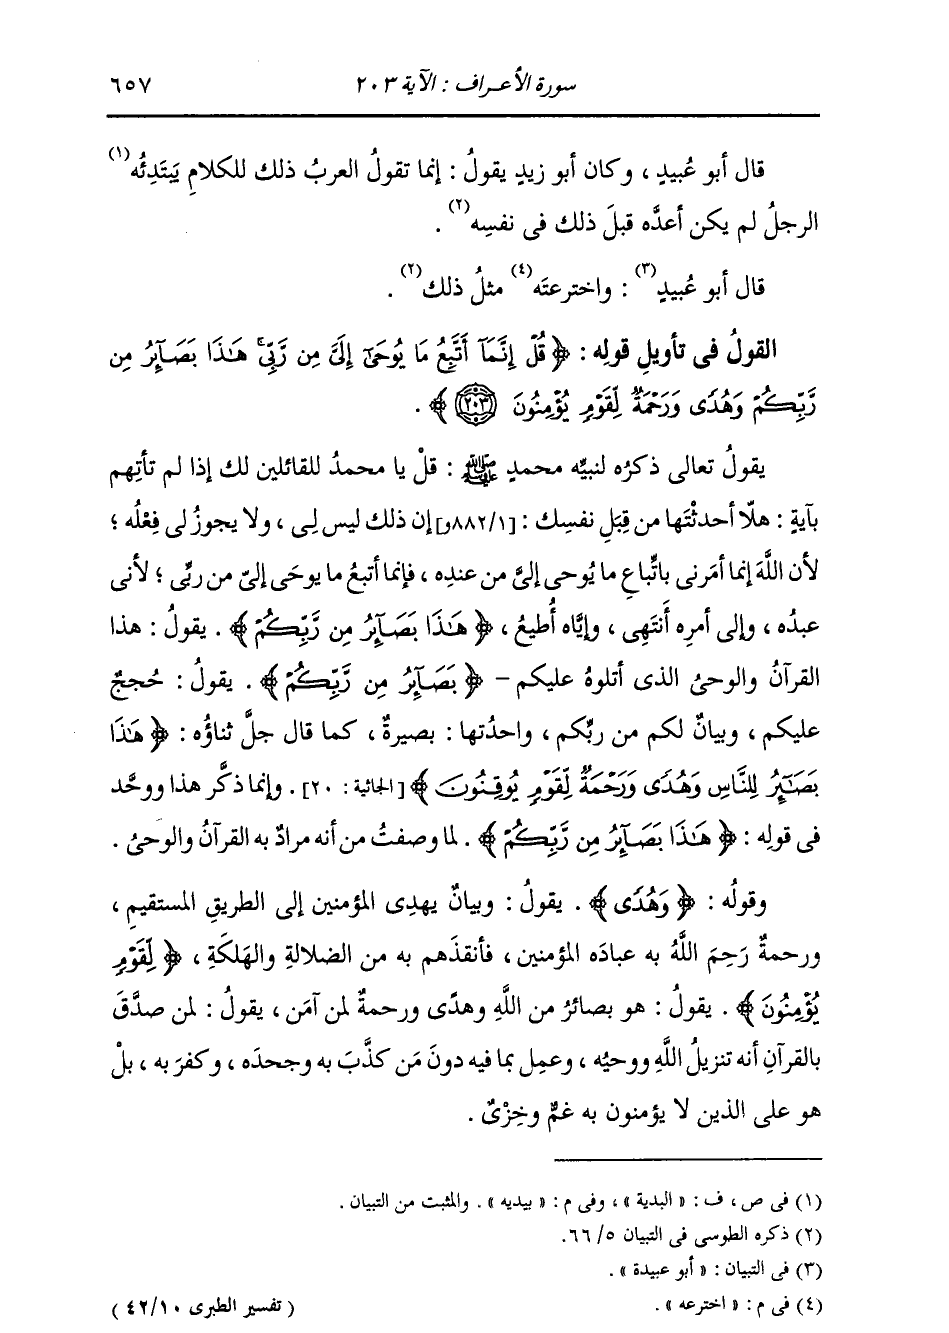 سورة الأعراف : الآية ٢٠٣ ٦٥٧
قال أبو عُبيدٍ ، وكان أبو زيدٍ يقولُ : إنما تقولُ العربُ ذلك للكلامِ يَبتَدِئُه(١)
الرجلُ لم يكن أعدَّه قبلَ ذلك فى نفسِه(٢) .
قال أبو عُبيدٍ(٣) : واخترعتَه(٤) مثلُ ذلك(٢) .
القولُ فى تأويلِ قولِه : ﴿ قُلْ إِنَّمَآ أَتَّبِعُ مَا يُوحَىٰٓ إِلَىَّ مِن رَّبِّى ۚ هَـٰذَا بَصَآئِرُ مِن
رَّبِّكُمْ وَهُدًى وَرَحْمَةٌ لِّقَوْمٍ يُؤْمِنُونَ ٢٠٣ ﴾ .
يقولُ تعالى ذكرُه لنبيِّه محمدٍ ﷺ : قلْ يا محمدُ للقائلين لك إذا لم تأتِهم
بآيةٍ : هلّا أحدثْتَها من قِبَلِ نفسِك : [٨٨٢/١و] إن ذلك ليس لِى ، ولا يجوزُ لى فِعْلُه ؛
لأن اللَّهَ إنما أمَرنى باتِّباعِ ما يُوحى إلىَّ من عندِه ، فإنما أتبعُ ما يوحَى إلىّ من ربِّى ؛ لأنى
عبدُه ، وإلى أمرِه أَنتَهِى ، وإيَّاه أُطيعُ ، ﴿ هَـٰذَا بَصَآئِرُ مِن رَّبِّكُمْ ﴾ . يقولُ : هذا
القرآنُ والوحىُ الذى أتلوهُ عليكم – ﴿ بَصَآئِرُ مِن رَّبِّكُمْ ﴾ . يقولُ : حُججٌ
عليكم ، وبيانٌ لكم من ربِّكم ، واحدتُها : بصيرةٌ ، كما قال جلَّ ثناؤُه : ﴿ هَـٰذَا
بَصَـٰٓئِرُ لِلنَّاسِ وَهُدًى وَرَحْمَةٌ لِّقَوْمٍ يُوقِنُونَ ﴾ [الجاثية : ٢٠] . وإنما ذكَّر هذا ووحَّد
فى قولِه : ﴿ هَـٰذَا بَصَآئِرُ مِن رَّبِّكُمْ ﴾ . لما وصفتُ من أنه مرادٌ به القرآنُ والوحىُ .
وقولُه : ﴿ وَهُدًى ﴾ . يقولُ : وبيانٌ يهدِى المؤمنين إلى الطريقِ المستقيمِ ،
ورحمةٌ رَحِمَ اللَّهُ به عبادَه المؤمنين ، فأنقذَهم به من الضلالةِ والهَلكَةِ ، ﴿ لِّقَوْمٍ
يُؤْمِنُونَ ﴾ . يقولُ : هو بصائرُ من اللَّهِ وهدًى ورحمةٌ لمن آمَن ، يقولُ : لمن صدَّقَ
بالقرآنِ أنه تنزيلُ اللَّهِ ووحيُه ، وعمِل بما فيه دونَ مَن كذَّبَ به وجحدَه ، وكفرَ به ، بلْ
هو على الذين لا يؤمنون به غمٌّ وخِزْىٌ .
(١) فى ص ، ف : « البدية » ، وفى م : « يبديه » . والمثبت من التبيان .
(٢) ذكره الطوسى فى التبيان ٥/ ٦٦.
(٣) فى التبيان : « أبو عبيدة » .
(٤) فى م : « اخترعه » . ( تفسير الطبرى ٤٢/١٠ )